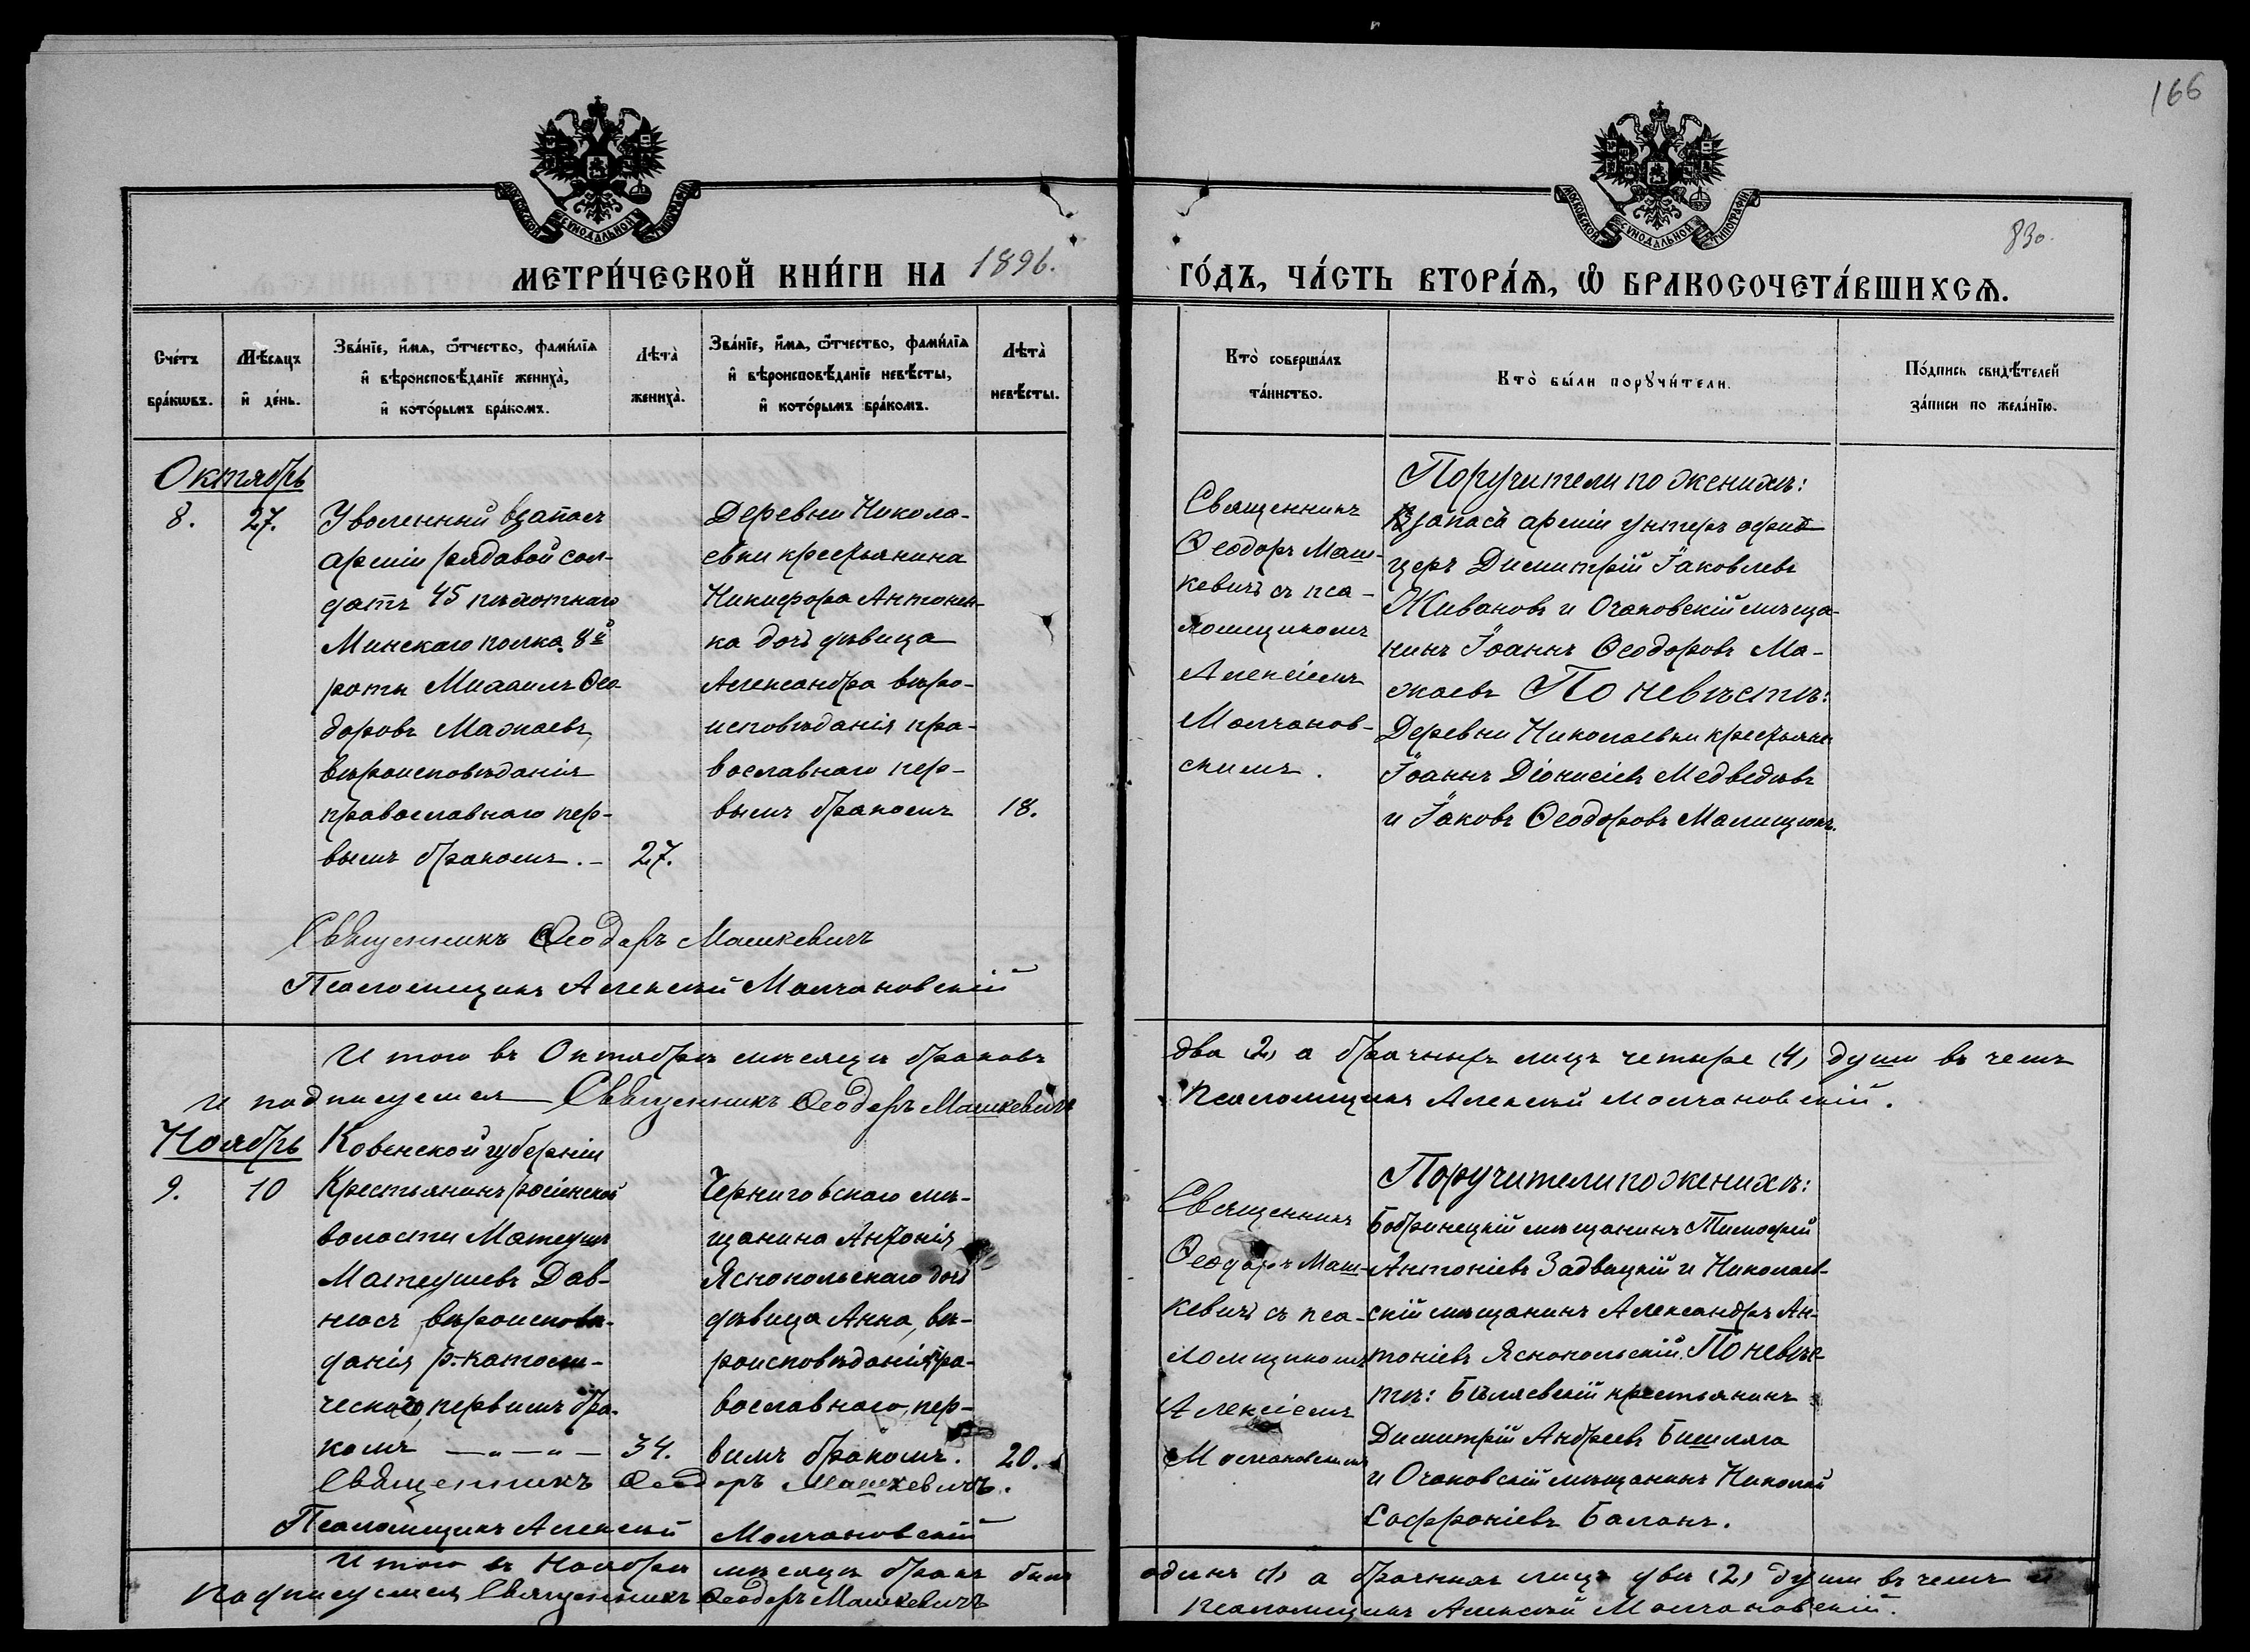 166
830.
МОСКОВСКОЙ СѴНОДАЛЬНОЙ ТИПОГРАФІИ
МОСКОВСКОЙ СѴНОДАЛЬНОЙ ТИПОГРАФІИ
МЕТРИ́ЧЕСКОЙ КНИ́ГИ НА 1896.
ГО́ДЪ, ЧА́СТЬ ВТОРА́Ѧ, Ѡ҆ БРАКОСОЧЕТА́ВШИХСѦ.
Сче́тъ
бра́кωвъ.
Мѣ́сяцъ
и҆ де́нь.
Зва́нїе, и҆́мѧ, ѻ҆́тчество, фами́лїѧ
и҆ вѣроисповѣ́данїе жениха̀,
и҆ кото́рымъ бра́комъ.
Лѣта̀
жениха̀.
Зва́нїе, и҆́мѧ, ѻ҆́тчество, фами́лїѧ
и҆ вѣроисповѣ́данїе невѣ́сты,
и҆ кото́рымъ бра́комъ.
Лѣта̀
невѣ́сты.
Кто̀ соверша́лъ
та́инство.
Кто̀ бы́ли порꙋчи́тели.
По́дпись свидѣ́телей
за́писи по жела́нїю.
Октябрь
8.
27.
Уволенный в запасъ
арміи рядовой сол-
датъ 45 пѣхотнаго
Минскаго полка 8й
роты Михаилъ Ѳео-
доровъ Мажаевъ,
вѣроисповѣданія
православнаго пер-
вымъ бракомъ.–
27.
Деревни Никола-
евки крестьянина
Никифора Антонен-
ка дочь дѣвица
Александра вѣро-
исповѣданія пра-
вославнаго пер-
вымъ бракомъ
18.
Священникъ
Ѳеодоръ Маш-
кевичъ съ пса-
ломщикомъ
Алексіемъ
Молчанов-
скимъ.
Поручители по женихѣ:
В запасѣ арміи унтеръ офи-
церъ Димитрій Іаковлевъ
Живановъ и Очаковскій мѣща-
нинъ Іоаннъ Ѳеодоровъ Ма-
жаевъ По невѣстѣ:
Деревни Николаевки крестьяне
Іоаннъ Діонисіевъ Медвѣдевъ
и Іаковъ Ѳеодоровъ
Священникъ Ѳеодоръ Машкевичъ
Псаломщикъ Алексѣй Молчановскій
Итого въ Октябрѣ мѣсяцѣ браковъ
два (2) а брачныхъ лицъ четыре (4) души въ чемъ
и подписуемся Священникъ Ѳеодоръ Машкевичъ
Псаломщикъ Алексѣй Молчановскій.
Ноябрь
9.
10
Ковенской губерніи
Крестьянинъ росіенской
волости Матеушъ
Матеушевъ Дав-
несъ вѣроисповѣ-
данія р.-католи-
ческаго, первымъ бра-
комъ —„—„—
34.
Черниговскаго мѣ-
щанина Антонія
Яснопольскаго дочь
дѣвица Анна, вѣ-
роисповѣданія пра-
вославнаго, пер-
вымъ бракомъ.
20.
Священникъ
Ѳеодоръ Маш-
кевичъ съ пса-
ломщикомъ
Алексіемъ
Молчановскимъ
Поручители по женихѣ:
Бобринецкій мѣщанинъ Тимофей
Антоніевъ Задвацкій и Николаев-
скій мѣщанинъ Александръ Ан-
тоніевъ Яснопольскій. По невѣс-
тѣ: Бѣляевскій крестьянинъ
Димитрій Андреевъ Бишляга
и Очаковскій мѣщанинъ Николай
Софроніевъ Баланъ.
Священникъ Ѳеодоръ Машкевичъ.
Псаломщикъ Алексѣй Молчановскій
Итого въ Ноябрѣ мѣсяцѣ бракъ былъ
одинъ (1) а брачныхъ лицъ двѣ (2) души въ чемъ и
Подписуемся Священникъ Ѳеодоръ Машкевичъ
Псаломщикъ Алексѣй Молчановскій.